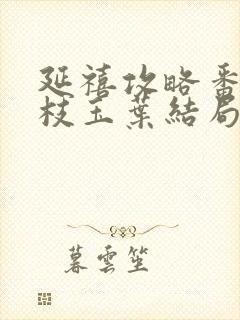 延禧攻略番
枝玉葉結局
暮雲笙